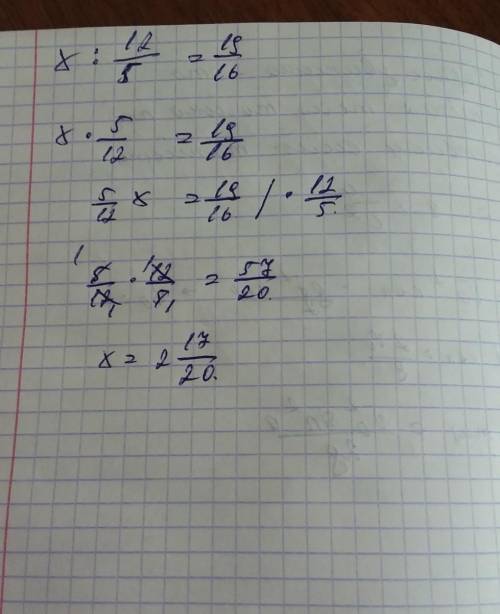 x : 12/5 = 19/16
x · 5/12 = 19/16
5/12 x = 19/16 / · 12/5.
1 5/12 1 · 1 12/5 1 = 57/20.
x = 2 17/20.